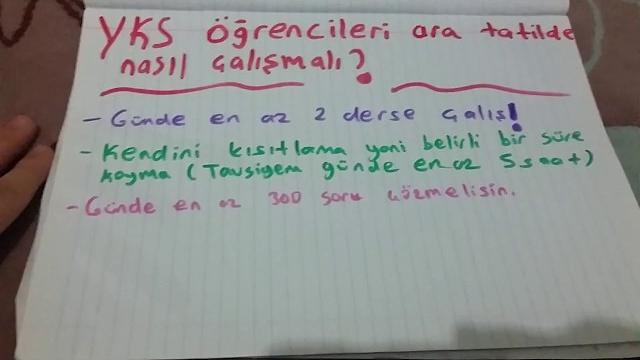 YKS öğrencileri ara tatilde
nasıl çalışmalı?
- Günde en az 2 derse çalış!
- Kendini kısıtlama yani belirli bir süre
koyma (Tavsiyem günde en az 5 saat)
- Günde en az 300 soru çözmelisin.